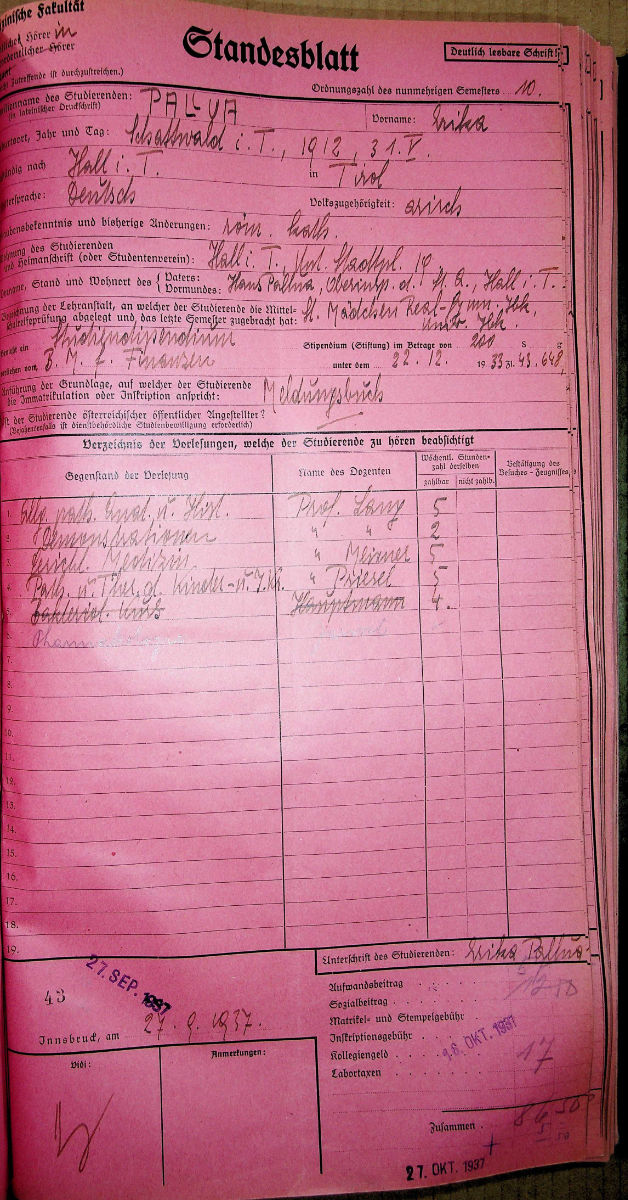 zinische Fakultät
Hörer in
ordentlicher Hörer
Zutreffende ist durchzustreichen.)
Standesblatt
Deutlich lesbare Schrift!
Ordnungszahl des nunmehrigen Semesters 10.
iliennamen des Studierenden: PALLUA
(in lateinischer Druckschrift)
Vorname: Erika
burtsort, Jahr und Tag: Schattwald i. T., 1912, 31. V.
ändig nach Hall i. T. in Tirol
ttersprache: Deutsch Volkszugehörigkeit: arisch
aubensbekenntnis und bisherige Änderungen: röm. kath.
ohnung des Studierenden
und Heimanschrift (oder Studentenverein): Hall i. T., Unt. Stadtpl. 14
orname, Stand und Wohnort des Vaters: Vormundes: Hans Pallua, Oberinsp. d. St. A., Hall i. T.
ezeichnung der Lehranstalt, an welcher der Studierende die Mittel-
schulreifeprüfung abgelegt und das letzte Semester zugebracht hat: St. Mädchen Real-Gymn. Jbk.
Univ. Jbk.
Studienstipendium
Stipendium (Stiftung) im Betrage von 200 S g
B. M. f. Finanzen unter dem 22. 12. 1933 Zl. 43.648
nführung der Grundlage, auf welcher der Studierende
die Immatrikulation oder Inskription anspricht: Meldungsbuch
st der Studierende österreichischer öffentlicher Angestellter?
(Bejahendenfalls ist dienstbehördliche Studienbewilligung erforderlich)
Verzeichnis der Vorlesungen, welche der Studierende zu hören beabsichtigt
Gegenstand der Vorlesung
Name des Dozenten
Wöchentl. Stunden-
zahl derselben
zahlbar nicht zahlb.
Bestätigung des
Besuches - Zeugnisses
1. Allg. path. Anat. u. Hist. Prof. Lang 5
2. Demonstrationen " " 2
3. Gerichtl. Medizin " Meixner 5
4. Path. u. Ther. d. Kinder- u. J. kr. " Priesel 5
5. Bakteriol. Kurs Hauptmann 4.
6. Pharmakologie
7.
8.
9.
10.
11.
12.
13.
14.
15.
16.
17.
18.
19.
Unterschrift des Studierenden: Erika Pallua
27. SEP. 1937
43
Innsbruck, am 27. 9. 1937.
Vidi:
Anmerkungen:
Aufwandsbeitrag
Sozialbeitrag
Matrikel- und Stempelgebühr
Inskriptionsgebühr
Kollegiengeld
Labortaxen 17
OKT. 1937
Zusammen
27. OKT. 1937